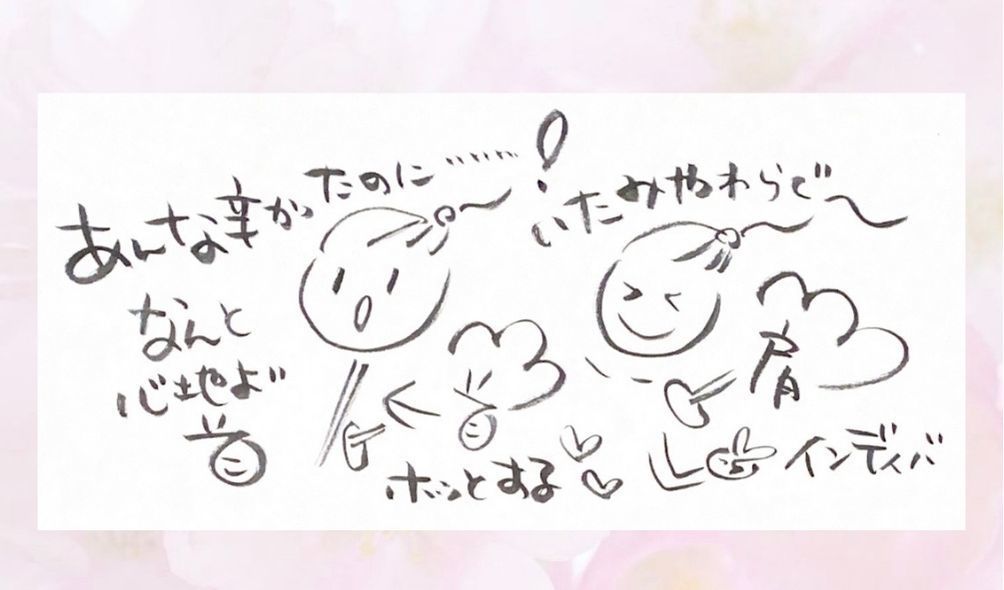 あんな辛かったのに……！
いたみやわらぐ〜
なんと
心地よ
首
首
肩
ホッとする
インディバ